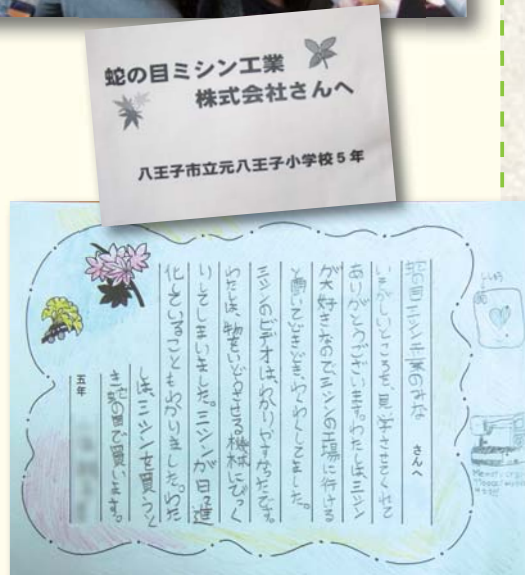 蛇の目ミシン工業
株式会社さんへ
八王子市立元八王子小学校5年
蛇の目ミシン工業のみな さんへ
いそがしいところを、見学させてくれて
ありがとうございます。わたしは、ミシン
が大好きなのでミシンの工場に行ける
と聞いてどきどきわくわくしてました。
ミシンのビデオは、わかりやすかったです。
わたしは、物をいどうさせる機械にびっく
りしてしまいました。ミシンが日々進
化していることもわかりました。わた
しは、ミシンを買うと
き蛇の目で買います。
五年